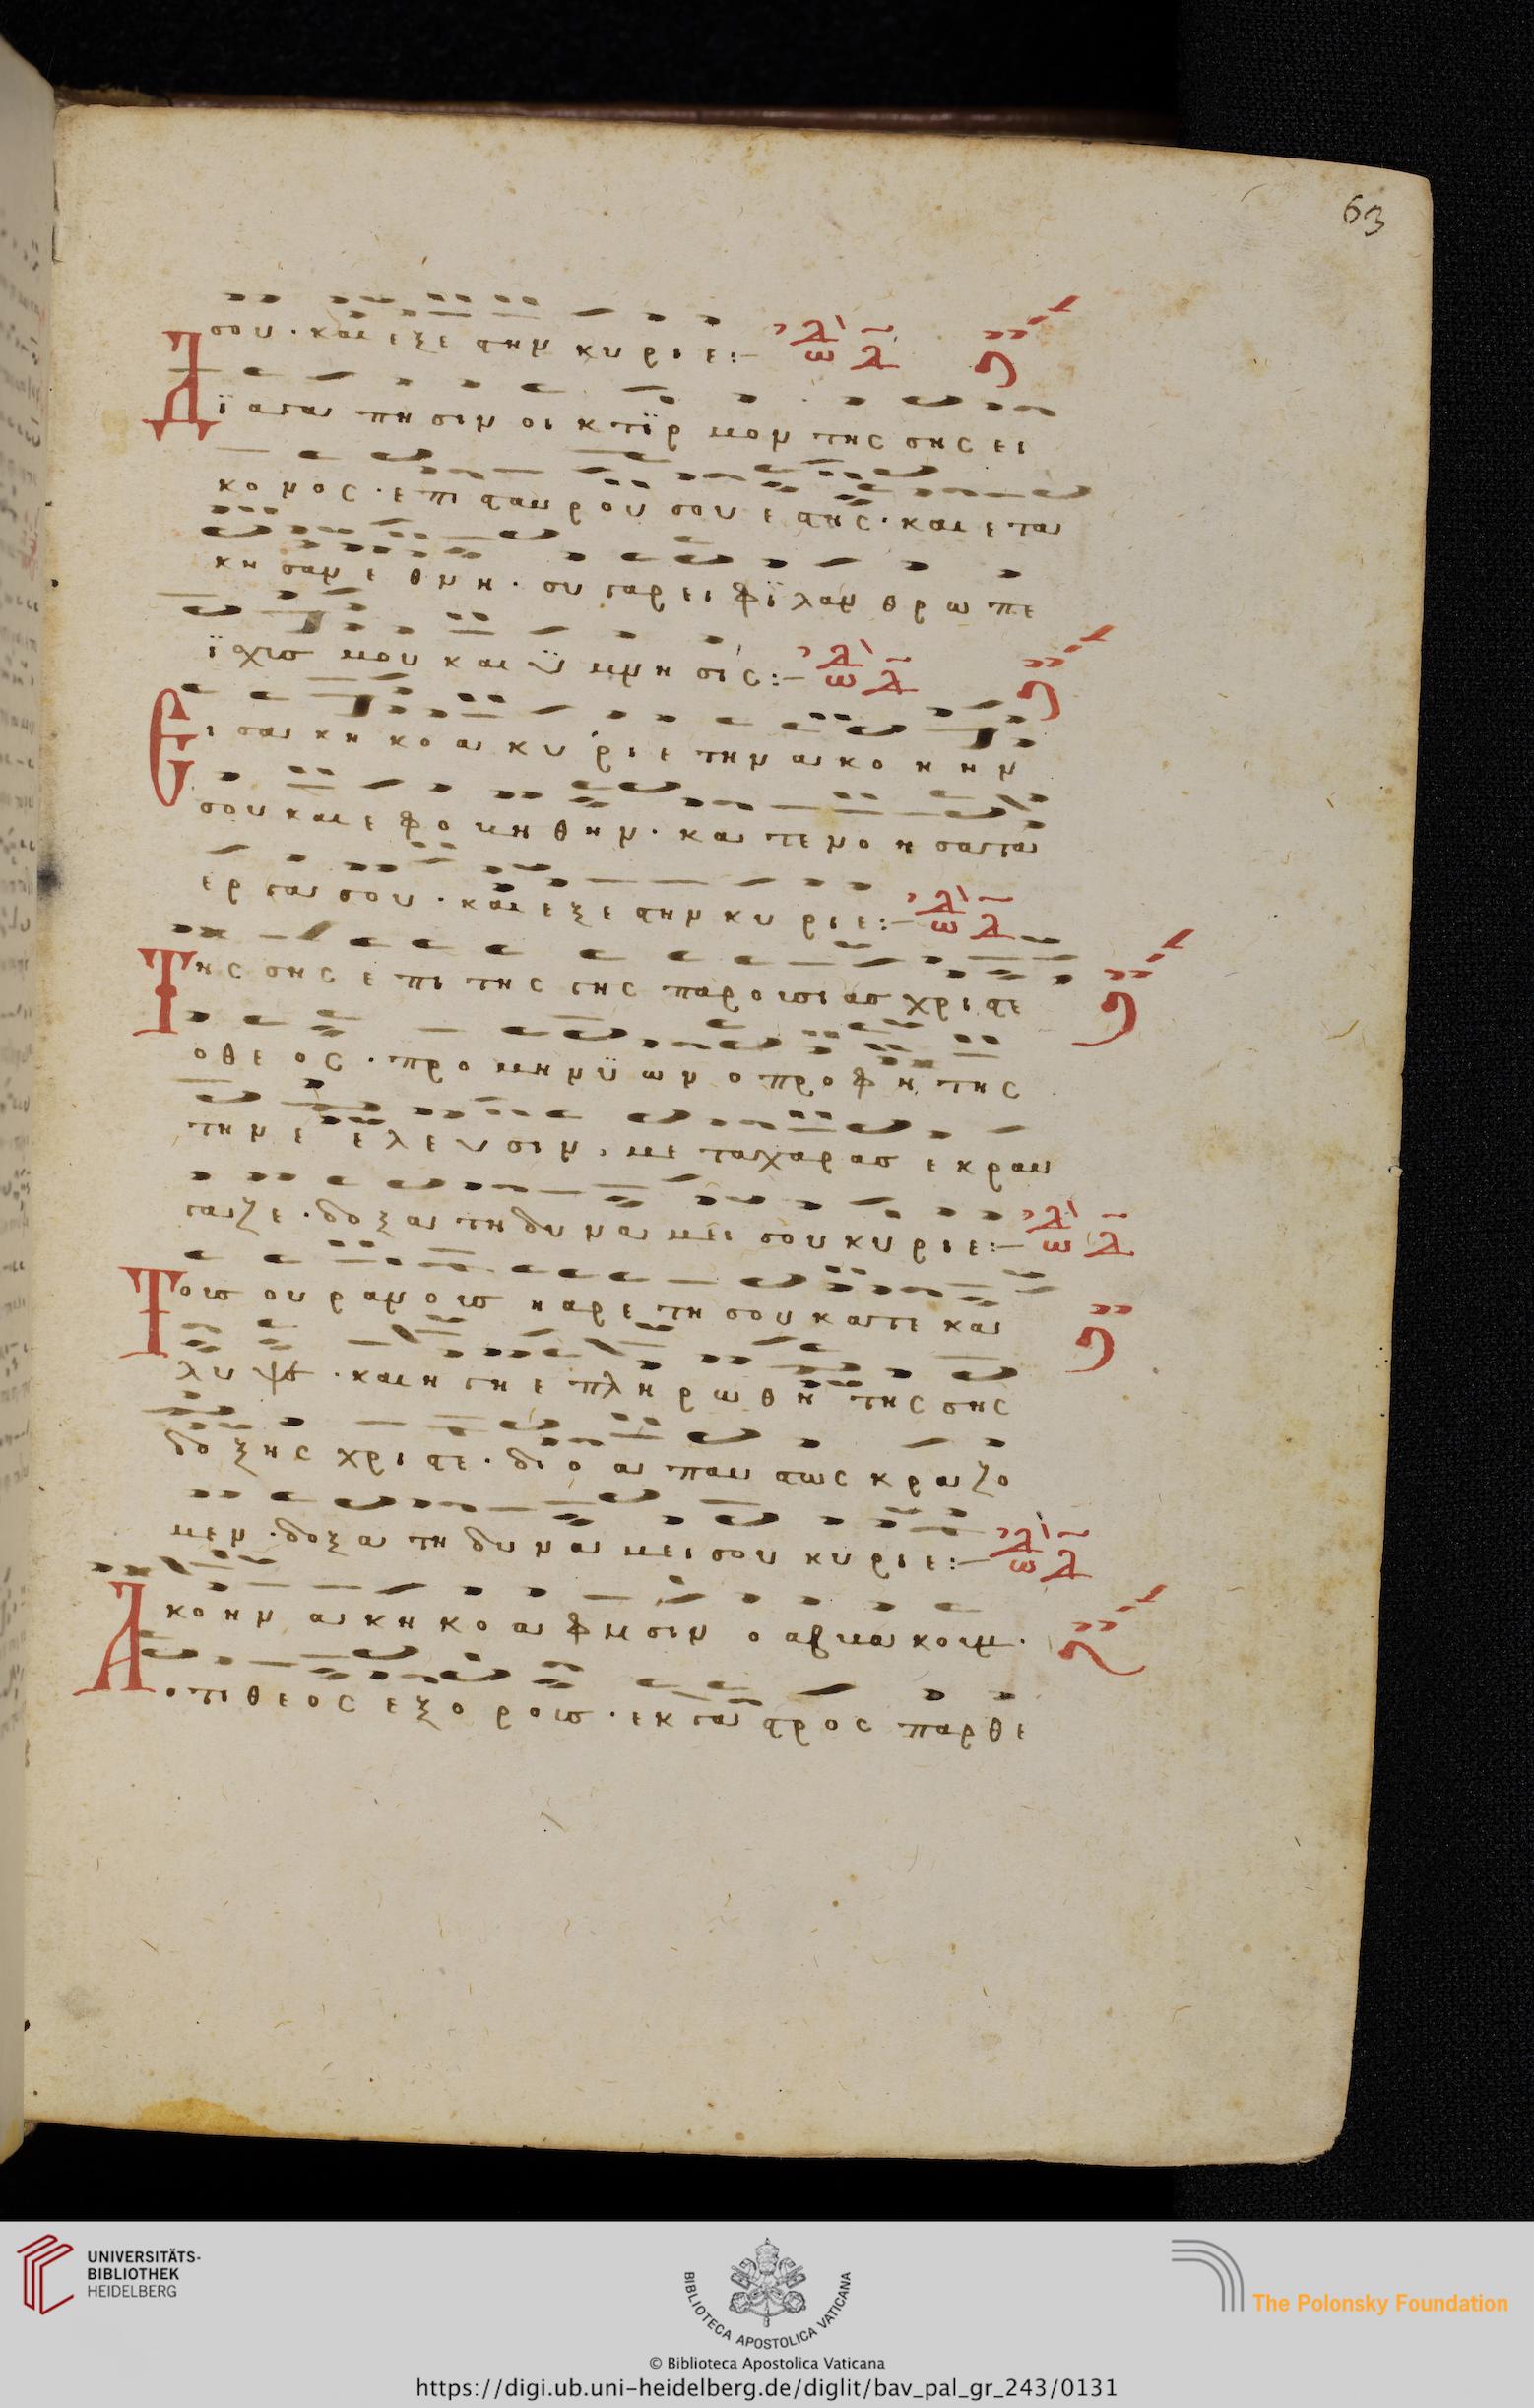 63
σου · και εξε στην κυ ριε :–
Δϊ αγα πη σιν οι κτϊρ μον της σης ει
κο νος · επι σταυ ρου σου ε στης · και ε τα
κη σαν ε θνη · συ γαρ ει φϊλαν θρω πε
ϊ χυσ μου και ϋ μνη σις :–
Ει σα κη κο α κυ ριε την α κο η ην
σου και ε φο βη θην · κα τε νο η σα τα
ερ γα σου · και εξε στην κυ ριε :–
Της σης ε πι της γης παρουσι ας χρι στε
ο θε ος · προ μη νϋ ων ο προ φη της
την ε ε λευ σιν · με τα χαρ ας ε κραυ
γαζε · δοξα τη δυ να μει σου κυ ριε :–
Τους ου ραν ους η αρε τη σου κατε κα
λυ ψε · και η γη ε πλη ρω θη της σης
δο ξης χρι στε · διο α παυ στως κρα ζο
μεν · δοξα τη δυ να μει σου κυ ριε :–
Ακο ην α κη κο α φη σιν ο αββακουμ ·
οτι θεος εξ ο ρους · εκ γα στρος παρθε
UNIVERSITÄTS-
BIBLIOTHEK
HEIDELBERG
BIBLIOTECA APOSTOLICA VATICANA
The Polonsky Foundation
© Biblioteca Apostolica Vaticana
https://digi.ub.uni-heidelberg.de/diglit/bav_pal_gr_243/0131